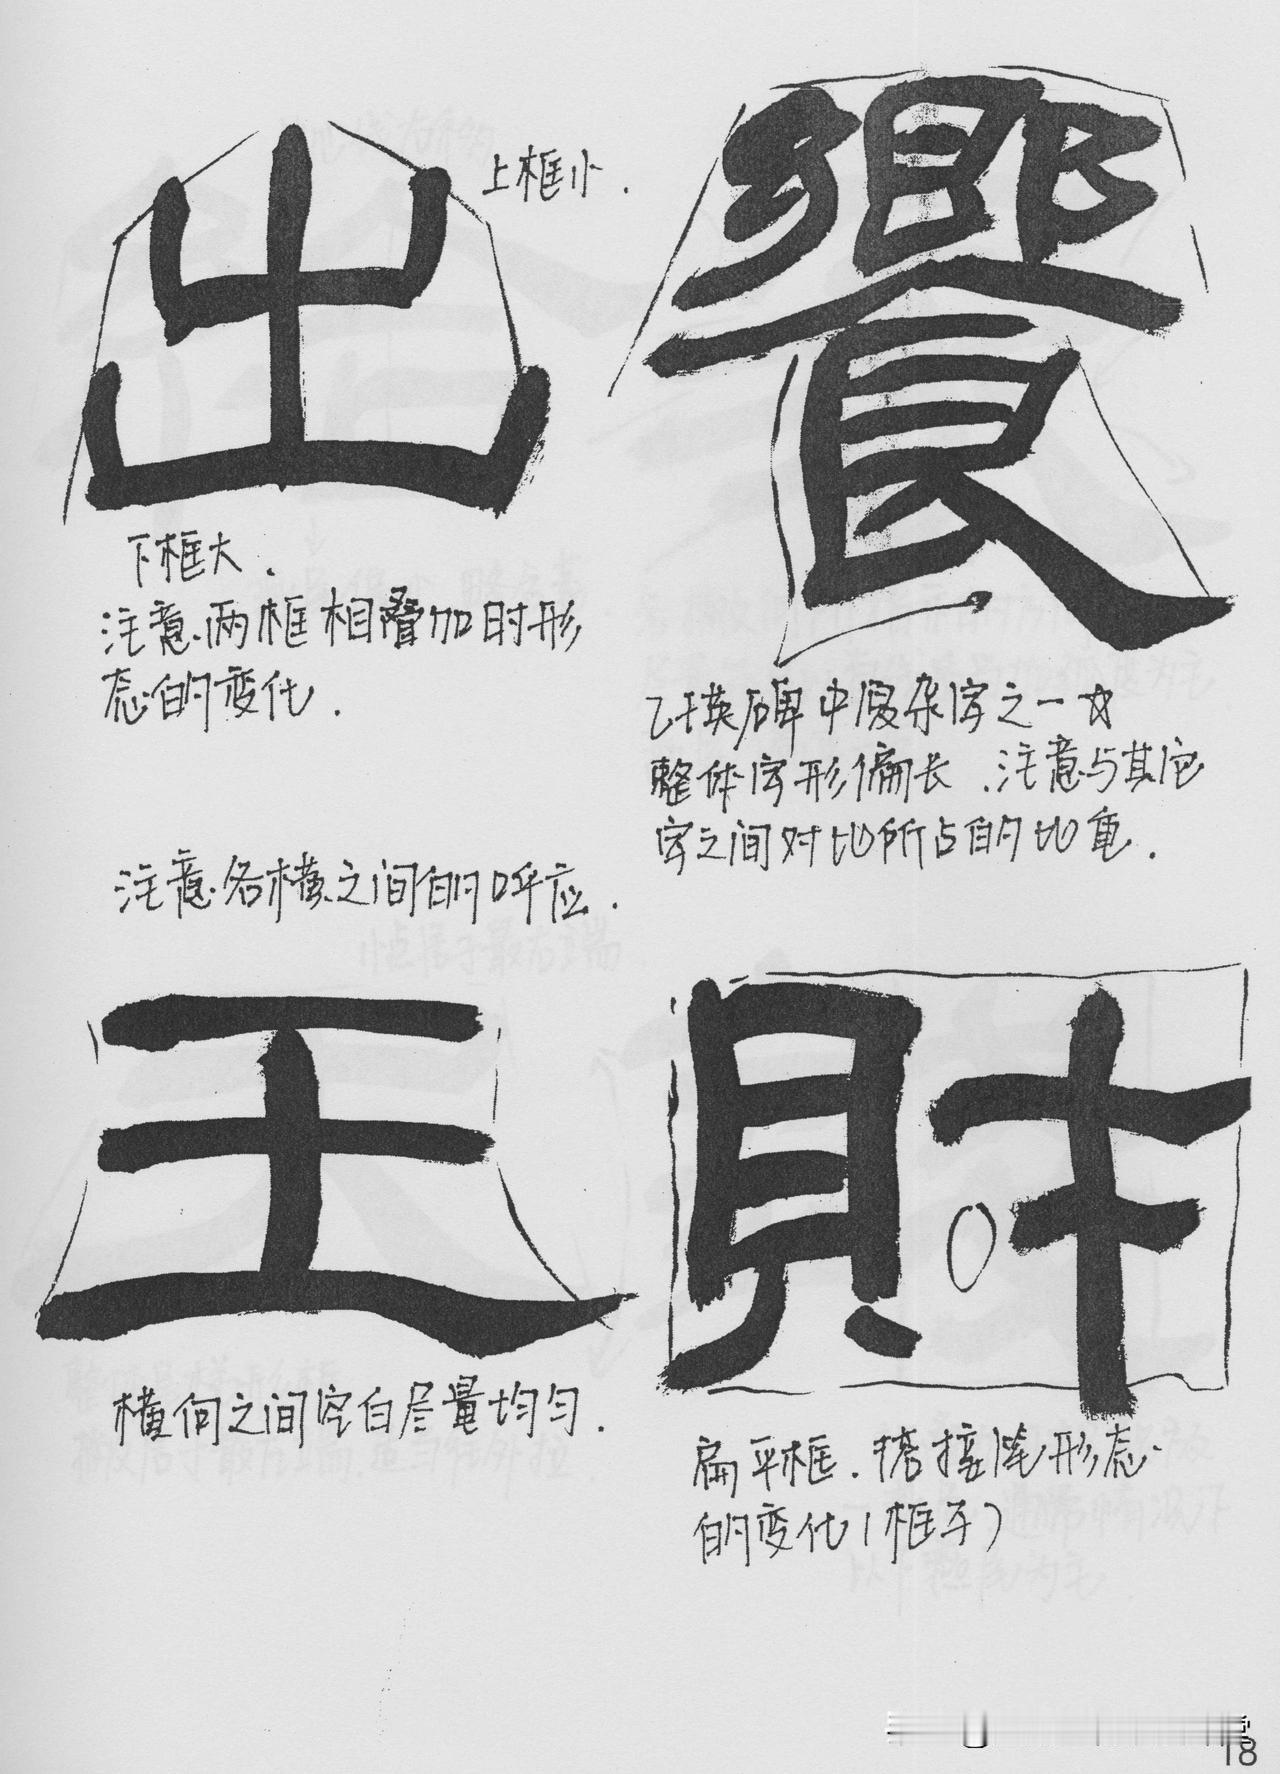 出
上框小.
下框大.
注意.两框相叠加时形
态的变化.
饗
乙瑛碑中复杂字之一☆
整体字形偏长.注意与其它
字之间对比所占的比重.
注意各横之间的呼应.
王
横向之间空白尽量均匀.
財
扁平框.搭接处形态
的变化(框子)
18